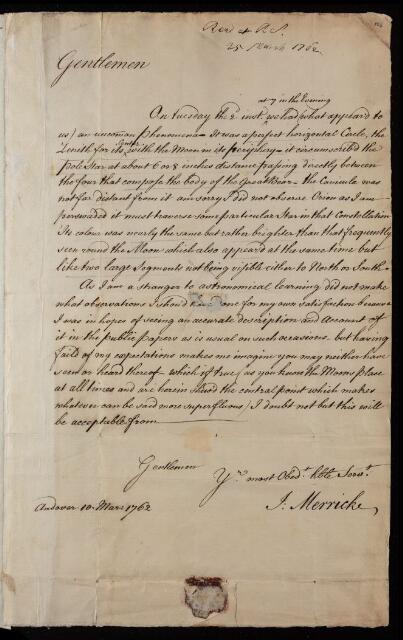 Read at R.S.
25 March 1762
Gentlemen
at 7 in the Evening
On Tuesday the 2 inst. we had (what appeard to
us) an uncomon Phenomena – It was a perfect horizontal Circle, the
Zenith for its Center with the Moon in its periphery – it circumscribed the
Pole Star at about 6 or 8 inches distance passing directly between
the four that compose the body of the Great Bear – the Canicula was
not far distant from it am sorry I did not observe Orion as I am
perswaded it must traverse some particular Star in that Constellation
Its colour was nearly the same but rather brighter than that frequently
seen round the Moon which also appeard at the same time but
like two large Segments not being visible either to North or South –
As I am a stranger to astronomical learning did not make
what observations I shoud have done for my own Satisfaction because
I was in hopes of seeing an accurate description and Account of
it in the public Papers as is usual on such occasions. but having
faild of my expectations makes me imagine you may neither have
seen or heard thereof – which if true, (as you know the Moons place
at all times and are herein the central point which makes
whatever can be said more superfluous) I doubt not but this will
be acceptable from
Gentlemen
Yr. most Obedt. hble Servt.
Andover 10 Mar: 1762
J. Merricke